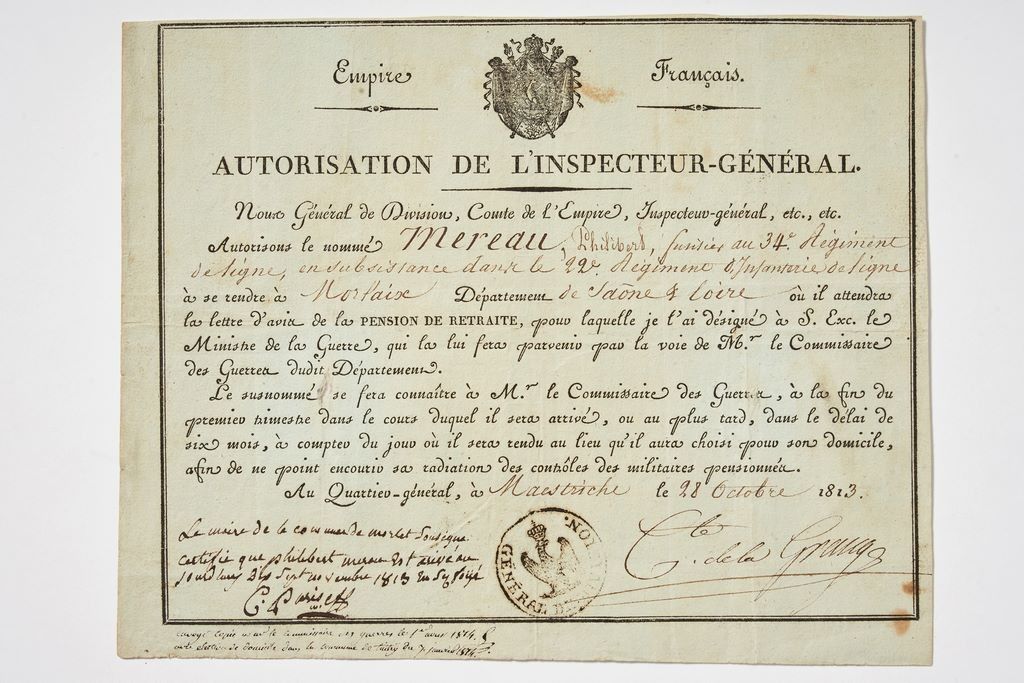 Empire Français.
AUTORISATION DE L'INSPECTEUR-GÉNÉRAL.
Nous Général de Division, Comte de l'Empire, Inspecteur-général, etc., etc.
Autorisons le nommé Mereau, Philibert, fusilier au 34e. Régiment
de ligne, en subsistance dans le 22e. Régiment d'Infanterie de ligne
à se rendre à Morlaix Département de Saône & Loire où il attendra
la lettre d'avis de la PENSION DE RETRAITE, pour laquelle je l'ai désigné à S. Exc. le
Ministre de la Guerre, qui la lui fera parvenir par la voie de M.r le Commissaire
des Guerres dudit Département.
Le susnommé se fera connaître à M.r le Commissaire des Guerres, à la fin du
premier trimestre dans le cours duquel il sera arrivé, ou au plus tard, dans le délai de
six mois, à compter du jour où il sera rendu au lieu qu'il aura choisi pour son domicile,
afin de ne point encourir sa radiation des contrôles des militaires pensionnés.
Au Quartier-général, à Maestriche le 28 Octobre 1813.
Le maire de la commune de morlet Sousigne
certifie que philibert merau est arivé au
jourdhuy dis sept novembre 1813
C. Pariset
Cte. de la
GÉNÉRAL
copie le commissaire des guerres le 1er 1814.
de domicile dans la commune de du janvier 1814.